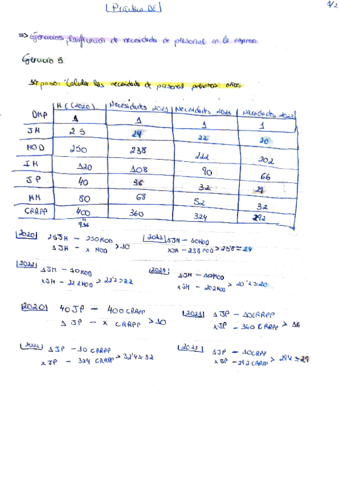 Práctica
1/2
=> Ejercicios planificación de necesidades de personal en la empresa
Ejercicio 3.
1er paso: Calcula las necesidades de personal próximos años
N (2020) Necesidades 2021 Necesidades 2022
DHP 1 1 1 1
JM 25 24 22 20
MOD 250 238 222 202
IM 120 108 90 66
JP 40 36 32
MM 80 68 52 32
CRAPP 400 360 324 292
936
|2020| 25JM - 250MOD
1JM - x MOD > 10
|2021| 1JM - 10MOD
xJM - 238MOD > 23'8 ≈ 24
|2022| 1JM - 10MOD
xJM - 222MOD > 22'2 ≈ 22
1JM - 10MOD
xJM - 202MOD > 20'2 ≈ 20
|2020| 40JP - 400CRAPP
1JP - x CRAPP > 10
1JP - 10CRAPP
xJP - 360CRAPP > 36
|2022| 1JP - 10CRAPP
xJP - 324CRAPP > 32'4 ≈ 32
1JP - 10CRAPP
xJP - 292CRAPP > 29'2 ≈ 29